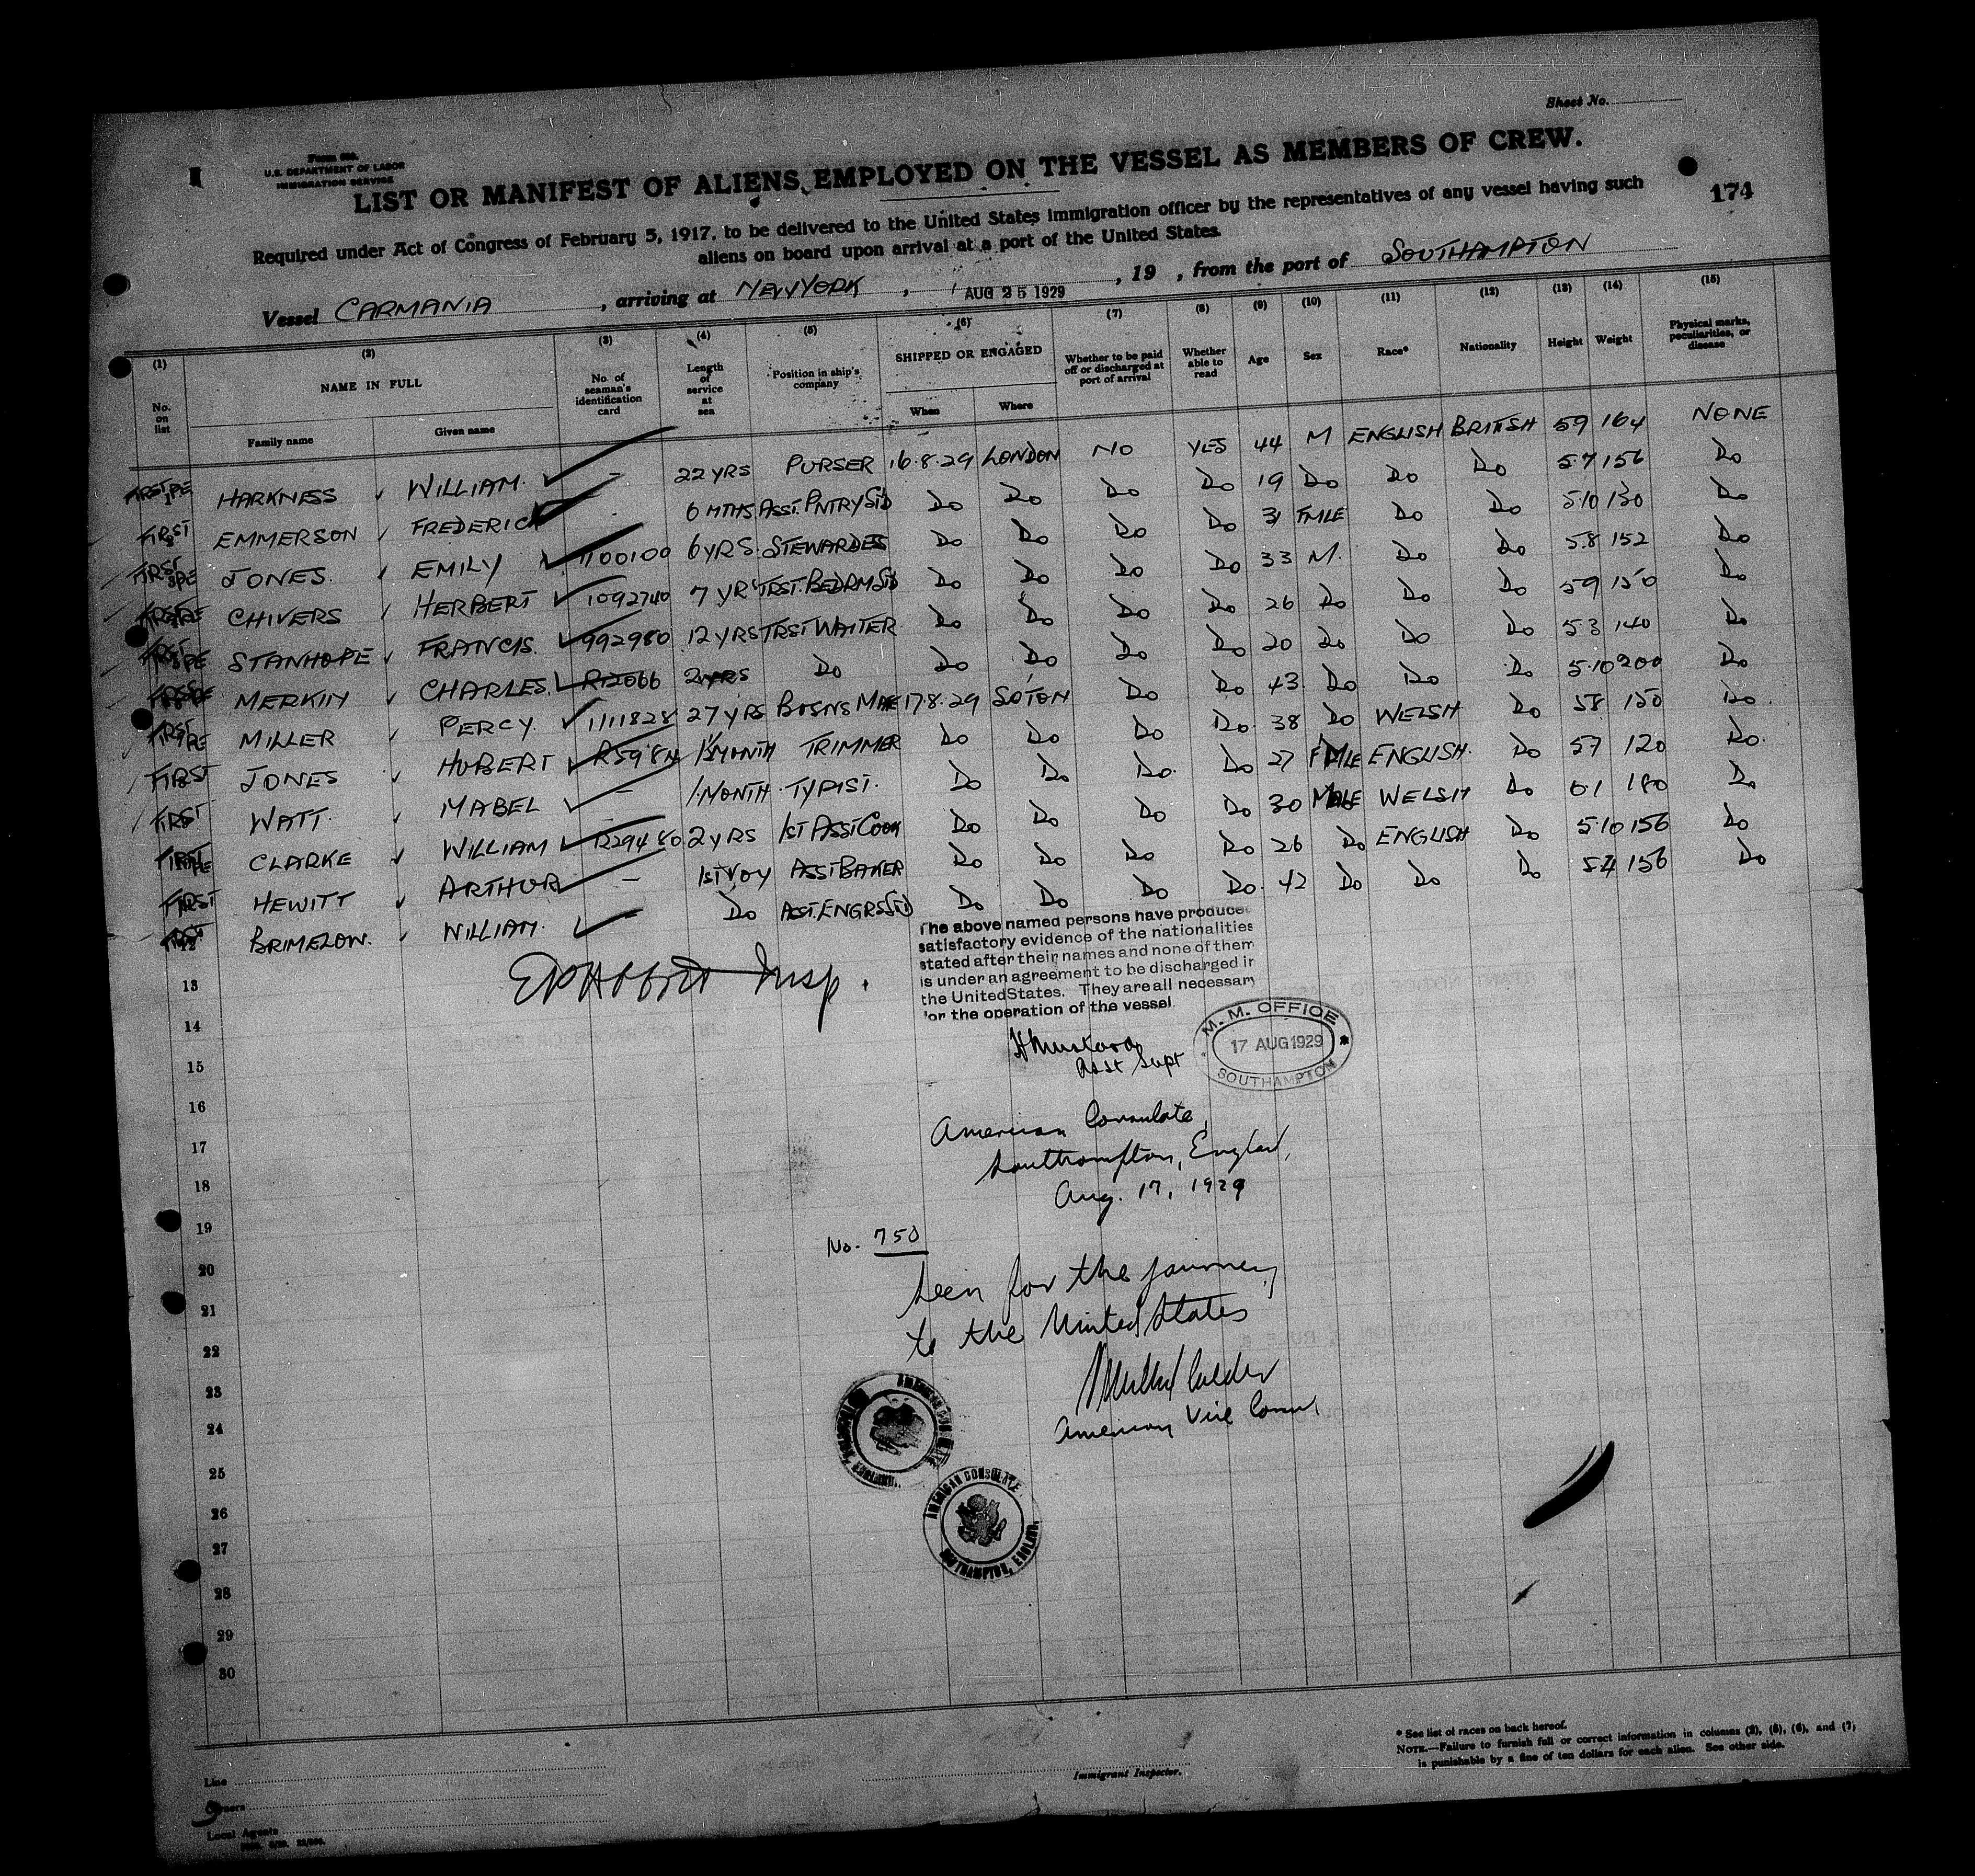 Sheet No.
U.S. DEPARTMENT OF LABOR
IMMIGRATION SERVICE
LIST OR MANIFEST OF ALIENS EMPLOYED ON THE VESSEL AS MEMBERS OF CREW.
174
Required under Act of Congress of February 5, 1917, to be delivered to the United States immigration officer by the representatives of any vessel having such
aliens on board upon arrival at a port of the United States.
Vessel CARMANIA , arriving at NEW YORK , AUG 25 1929 , 19 , from the port of SOUTHAMPTON
(1) (2) (3) (4) (5) (6) (7) (8) (9) (10) (11) (12) (13) (14) (15)
No. on list NAME IN FULL Family name Given name No. of seaman's identification card Length of service at sea Position in ship's company SHIPPED OR ENGAGED When Where Whether to be paid off or discharged at port of arrival Whether able to read Age Sex Race* Nationality Height Weight Physical marks, peculiarities, or disease
HARKNESS WILLIAM. - 22 YRS PURSER 16.8.29 LONDON NO YES 44 M ENGLISH BRITISH 59 164 NONE
FIRST EMMERSON FREDERICK 6 MTHS ASST. PNTRY STD Do Do Do Do 19 Do Do Do 57 156 Do
FIRST JONES. EMILY 1100100 6 YRS STEWARDES Do Do Do Do 31 FMLE Do Do 5.10 130 Do
CHIVERS HERBERT 1092740 7 YRS TRST. BEDRM STD Do Do Do Do 33 M. Do Do 5.8 152 Do
STANHOPE FRANCIS. 992980 12 YRS TRST WAITER Do Do Do Do 26 Do Do Do 59 150 Do
CHARLES. R12066 2 YRS Do Do Do Do Do 20 Do Do Do 53 140 Do
FIRST MILLER PERCY. 1111828 27 YRS BOSNS MATE 17.8.29 SOTON Do Do 43 Do Do Do 5.10 200 Do
FIRST JONES HUBERT MONTH TRIMMER Do Do Do Do 38 Do WELSH Do 58 150 Do
FIRST WATT. MABEL - 1 MONTH TYPIST. Do Do Do Do 27 FMLE ENGLISH. Do 57 120 Do.
CLARKE WILLIAM R229480 2 YRS 1ST ASST COOK Do Do Do Do 30 MALE WELSH Do 61 180 Do
FIRST HEWITT ARTHUR - 1ST VOY ASST BAKER Do Do Do Do 26 Do ENGLISH Do 5.10 156 Do
12 BRIMELOW. WILLIAM. Do ASST. ENGRS STD Do Do Do Do 42 Do Do Do 54 156 Do
Insp.
The above named persons have produce
satisfactory evidence of the nationalities
stated after their names and none of them
is under an agreement to be discharged in
the United States. They are all necessary
for the operation of the vessel.
Asst Supt
M. M. OFFICE
17 AUG 1929
SOUTHAMPTON
American Consulate,
Southampton, England,
Aug. 17, 1929
No. 750
Seen for the journey
to the United States
American Vice Consul
AMERICAN CONSULATE
SOUTHAMPTON, ENGLAND.
AMERICAN CONSULATE
SOUTHAMPTON, ENGLAND.
13
14
15
16
17
18
19
20
21
22
23
24
25
26
27
28
29
30
* See list of races on back hereof.
NOTE.—Failure to furnish full or correct information in columns (2), (5), (6), and (7)
is punishable by a fine of ten dollars for each alien. See other side.
Line
Owners
Local Agents
Immigrant Inspector.